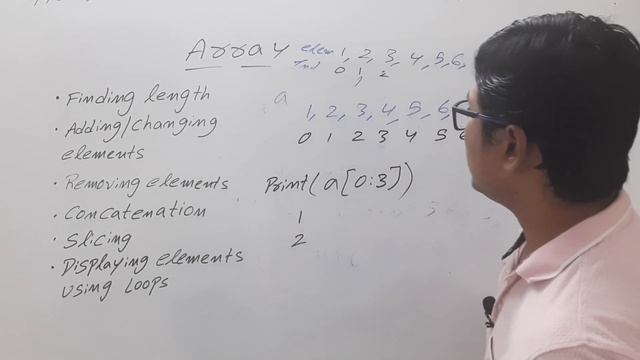 Array
elem 1, 2, 3, 4, 5, 6,
Ind 0, 1, 2
• Finding length
• Adding/Changing
elements
• Removing elements
• Concatenation
• Slicing
• Displaying elements
using Loops
a
1, 2, 3, 4, 5, 6,
0 1 2 3 4 5 6
Print(a[0:3])
1
2